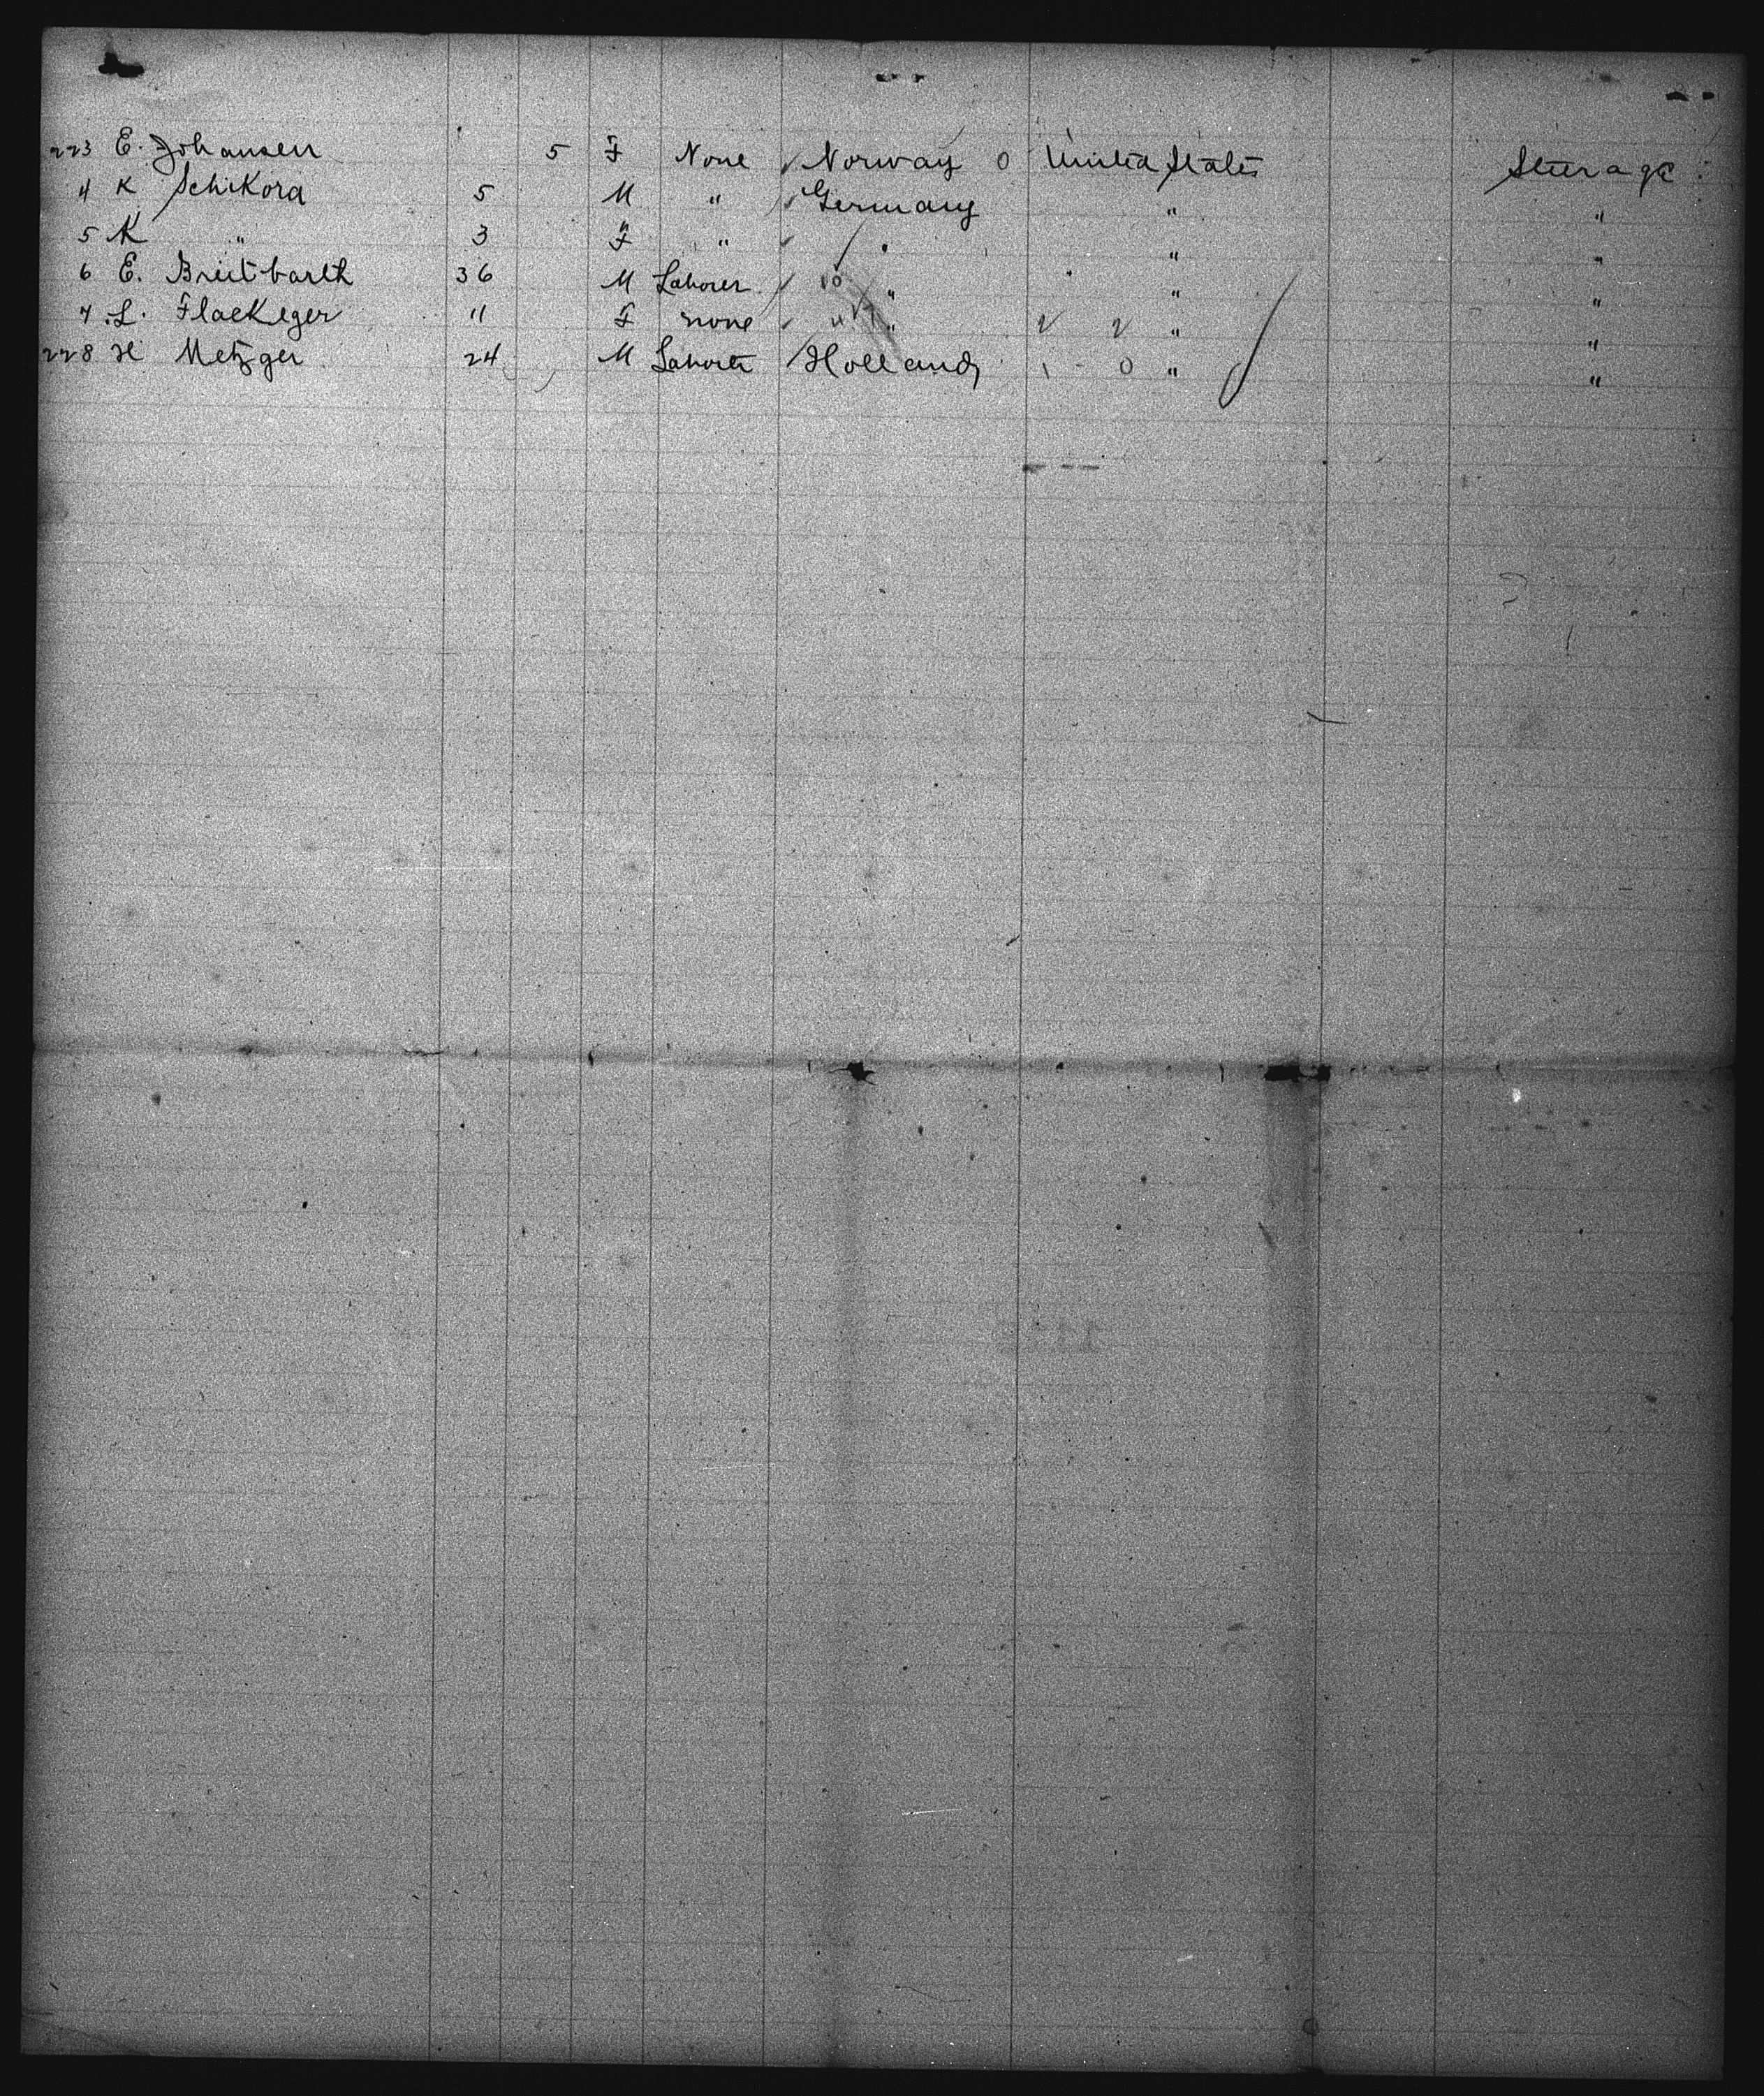 223 E. Johansen 5 F None Norway 0 United States Steerage
4 K Schikora 5 M " Germany " "
5 K " 3 F " " " "
6 E. Breitbarth 36 M Laborer " " "
7 L. Flackeger 11 F none " " "
228 H Metzger 24 M Laborer Holland 1 0 " "